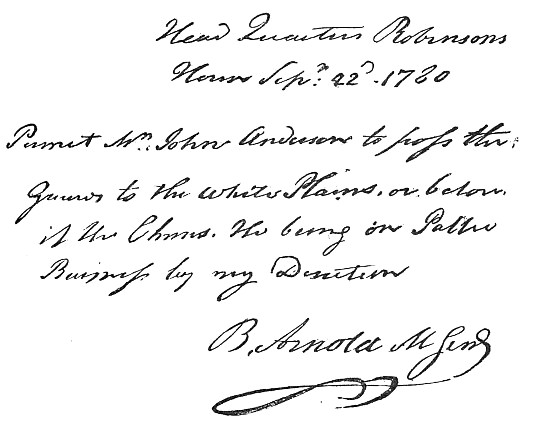 Head Quarters Robinsons
House Sepr. 22d. 1780
Permit Mr. John Anderson to pass the
Guards to the White Plains, or below,
if He Chuses. He being on Public
Buisness by my Direction
B. Arnold M Genl